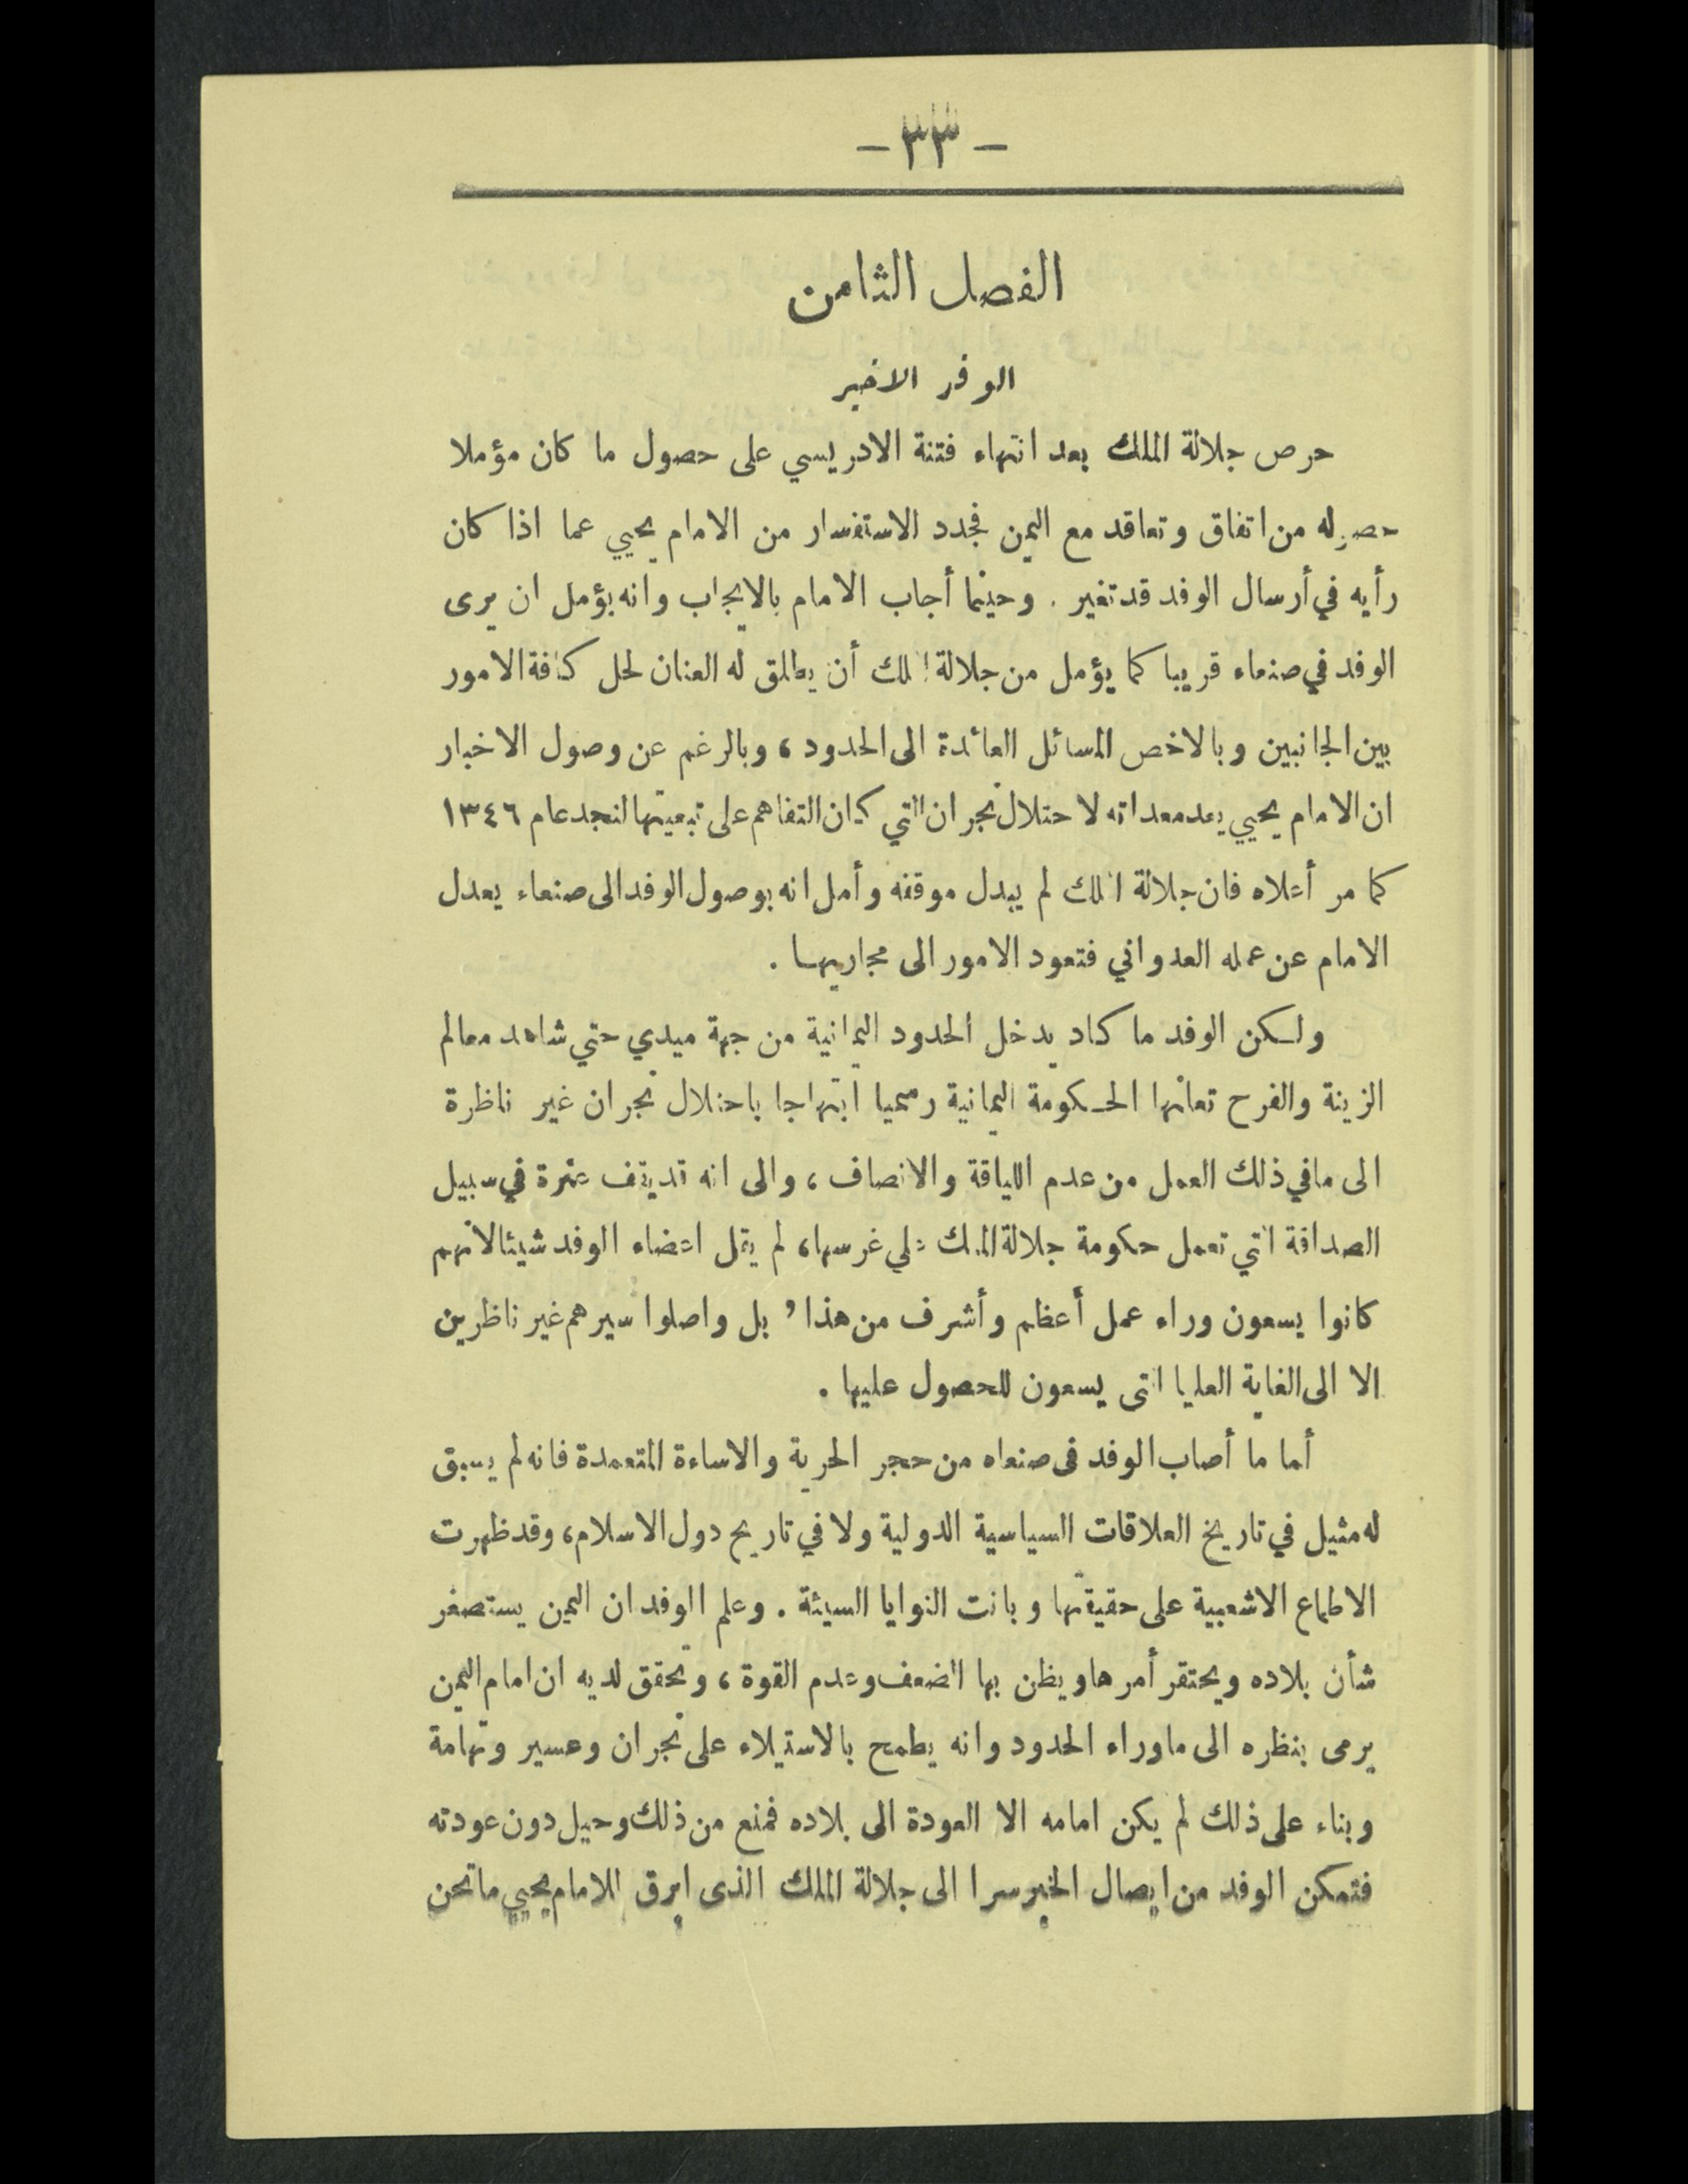 - ٣٣ -
الفصل الثامن
الوفد الاخير
حرص جلالة الملك بعد انتهاء فتنة الادريسي على حصول ما كان مؤملا
حصوله من اتفاق وتعاقد مع اليمن فجدد الاستفسار من الامام يحيي عما اذا كان
رأيه في أرسال الوفد قد تغير . وحينما أجاب الامام بالايجاب وانه يؤمل ان يرى
الوفد في صنعاء قريبا كما يؤمل من جلالة الملك أن يطلق له العنان لحل كافة الامور
بين الجانبين وبالاخص المسائل العائدة الى الحدود ، وبالرغم عن وصول الاخبار
ان الامام يحيي يعد معداته لاحتلال نجران التي كان التفاهم على تبعيتها لنجد عام ١٣٤٦
كما مر أعلاه فان جلالة الملك لم يبدل موقفه وأمل انه بوصول الوفد الى صنعاء يعدل
الامام عن عمله العدواني فتعود الامور الى مجاريها .
ولكن الوفد ما كاد يدخل الحدود اليمانية من جهة ميدي حتي شاهد معالم
الزينة والفرح تعلنها الحكومة اليمانية رسميا ابتهاجا باحتلال نجران غير ناظرة
الى مافي ذلك العمل من عدم اللياقة والانصاف ، والى انه قد يقف عثرة في سبيل
الصداقة التي تعمل حكومة جلالة الملك علي غرسها، لم يقل اعضاء الوفد شيئا لانهم
كانوا يسعون وراء عمل أعظم وأشرف من هذا , بل واصلوا سيرهم غير ناظرين
الا الى الغاية العليا التى يسعون للحصول عليها .
أما ما أصاب الوفد فى صنعاه من حجر الحرية والاساءة المتعمدة فانه لم يسبق
له مثيل في تاريخ العلاقات السياسية الدولية ولا في تاريح دول الاسلام، وقد ظهرت
الاطماع الاشعبية على حقيقتها وبانت النوايا السيئة . وعلم الوفد ان اليمن يستصغر
شأن بلاده ويحتقر أمرها ويظن بها الضعف وعدم القوة ، وتحقق لديه ان امام اليمن
يرمى بنظره الى ماوراء الحدود وانه يطمح بالاستيلاء على نجران وعسير وتهامة
وبناء على ذلك لم يكن امامه الا العودة الى بلاده فمنع من ذلك وحيل دون عودته
فتمكن الوفد من ايصال الخبر سرا الى جلالة الملك الذى ابرق للامام يحيي ما نحن